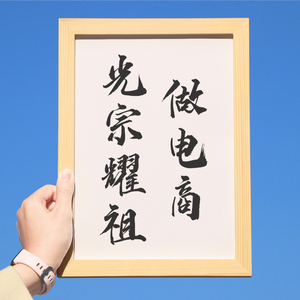 做电商
光宗耀祖